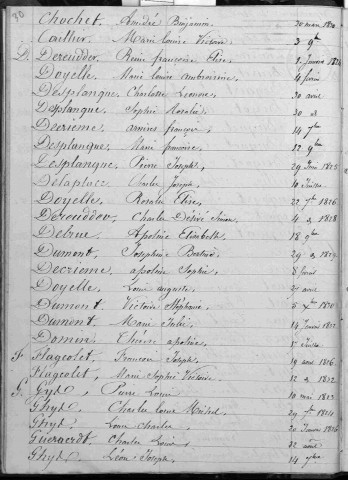 Chochet, André Benjamin. 20 mars
Caillier, Marie Louise Victoire. 3 9e
D. Dereudder, Remi françoise Elise, 12 janvier 1814
Doyelle, Marie Louise Ambroisine, 6 fevrier
Desplanque, Charlotte Leonore, 30 avril
Desplanque, Sophie Rosalie, 30 d
Decrieme, françois, 14 7bre
Desplanque, Marie françoise, 12 9bre
Desplanque, Pierre Joseph, 29 Juin 1815
Delaplace, Charles Joseph, 10 Juillet
Doyelle, Rosalie Elise, 22 7e 1816
Dereudder, Charles Désiré Simon, 4 1818
Debrue, Apoline Elisabeth, 18 9bre
Dumont, Josephine Beatrix, 29 1819
Decrieme, apoline Sophie, 8 fevrier
Doyelle, Louis auguste, 21 avril
Dumont, Victoire Stéphanie, 5 Xbre 1820
Dumont, Marie Julie, 14 fevrier 1822
Damiens, Thérèse apoline,
F. Flageolet, François Joseph, 19 avril 1806
Flageolet, Marie Sophie Victoire, 12 1812
G. Gyde, Pierre Louis, 10 mai 1812
Ghyde, Charles Louis Michel, 29 7e 1814
Ghyde, Louis Charles, 20 Janvier 1816
Gueraerdt, Charles Louis, 22 août
Ghyde, Léon Joseph, 14 7bre